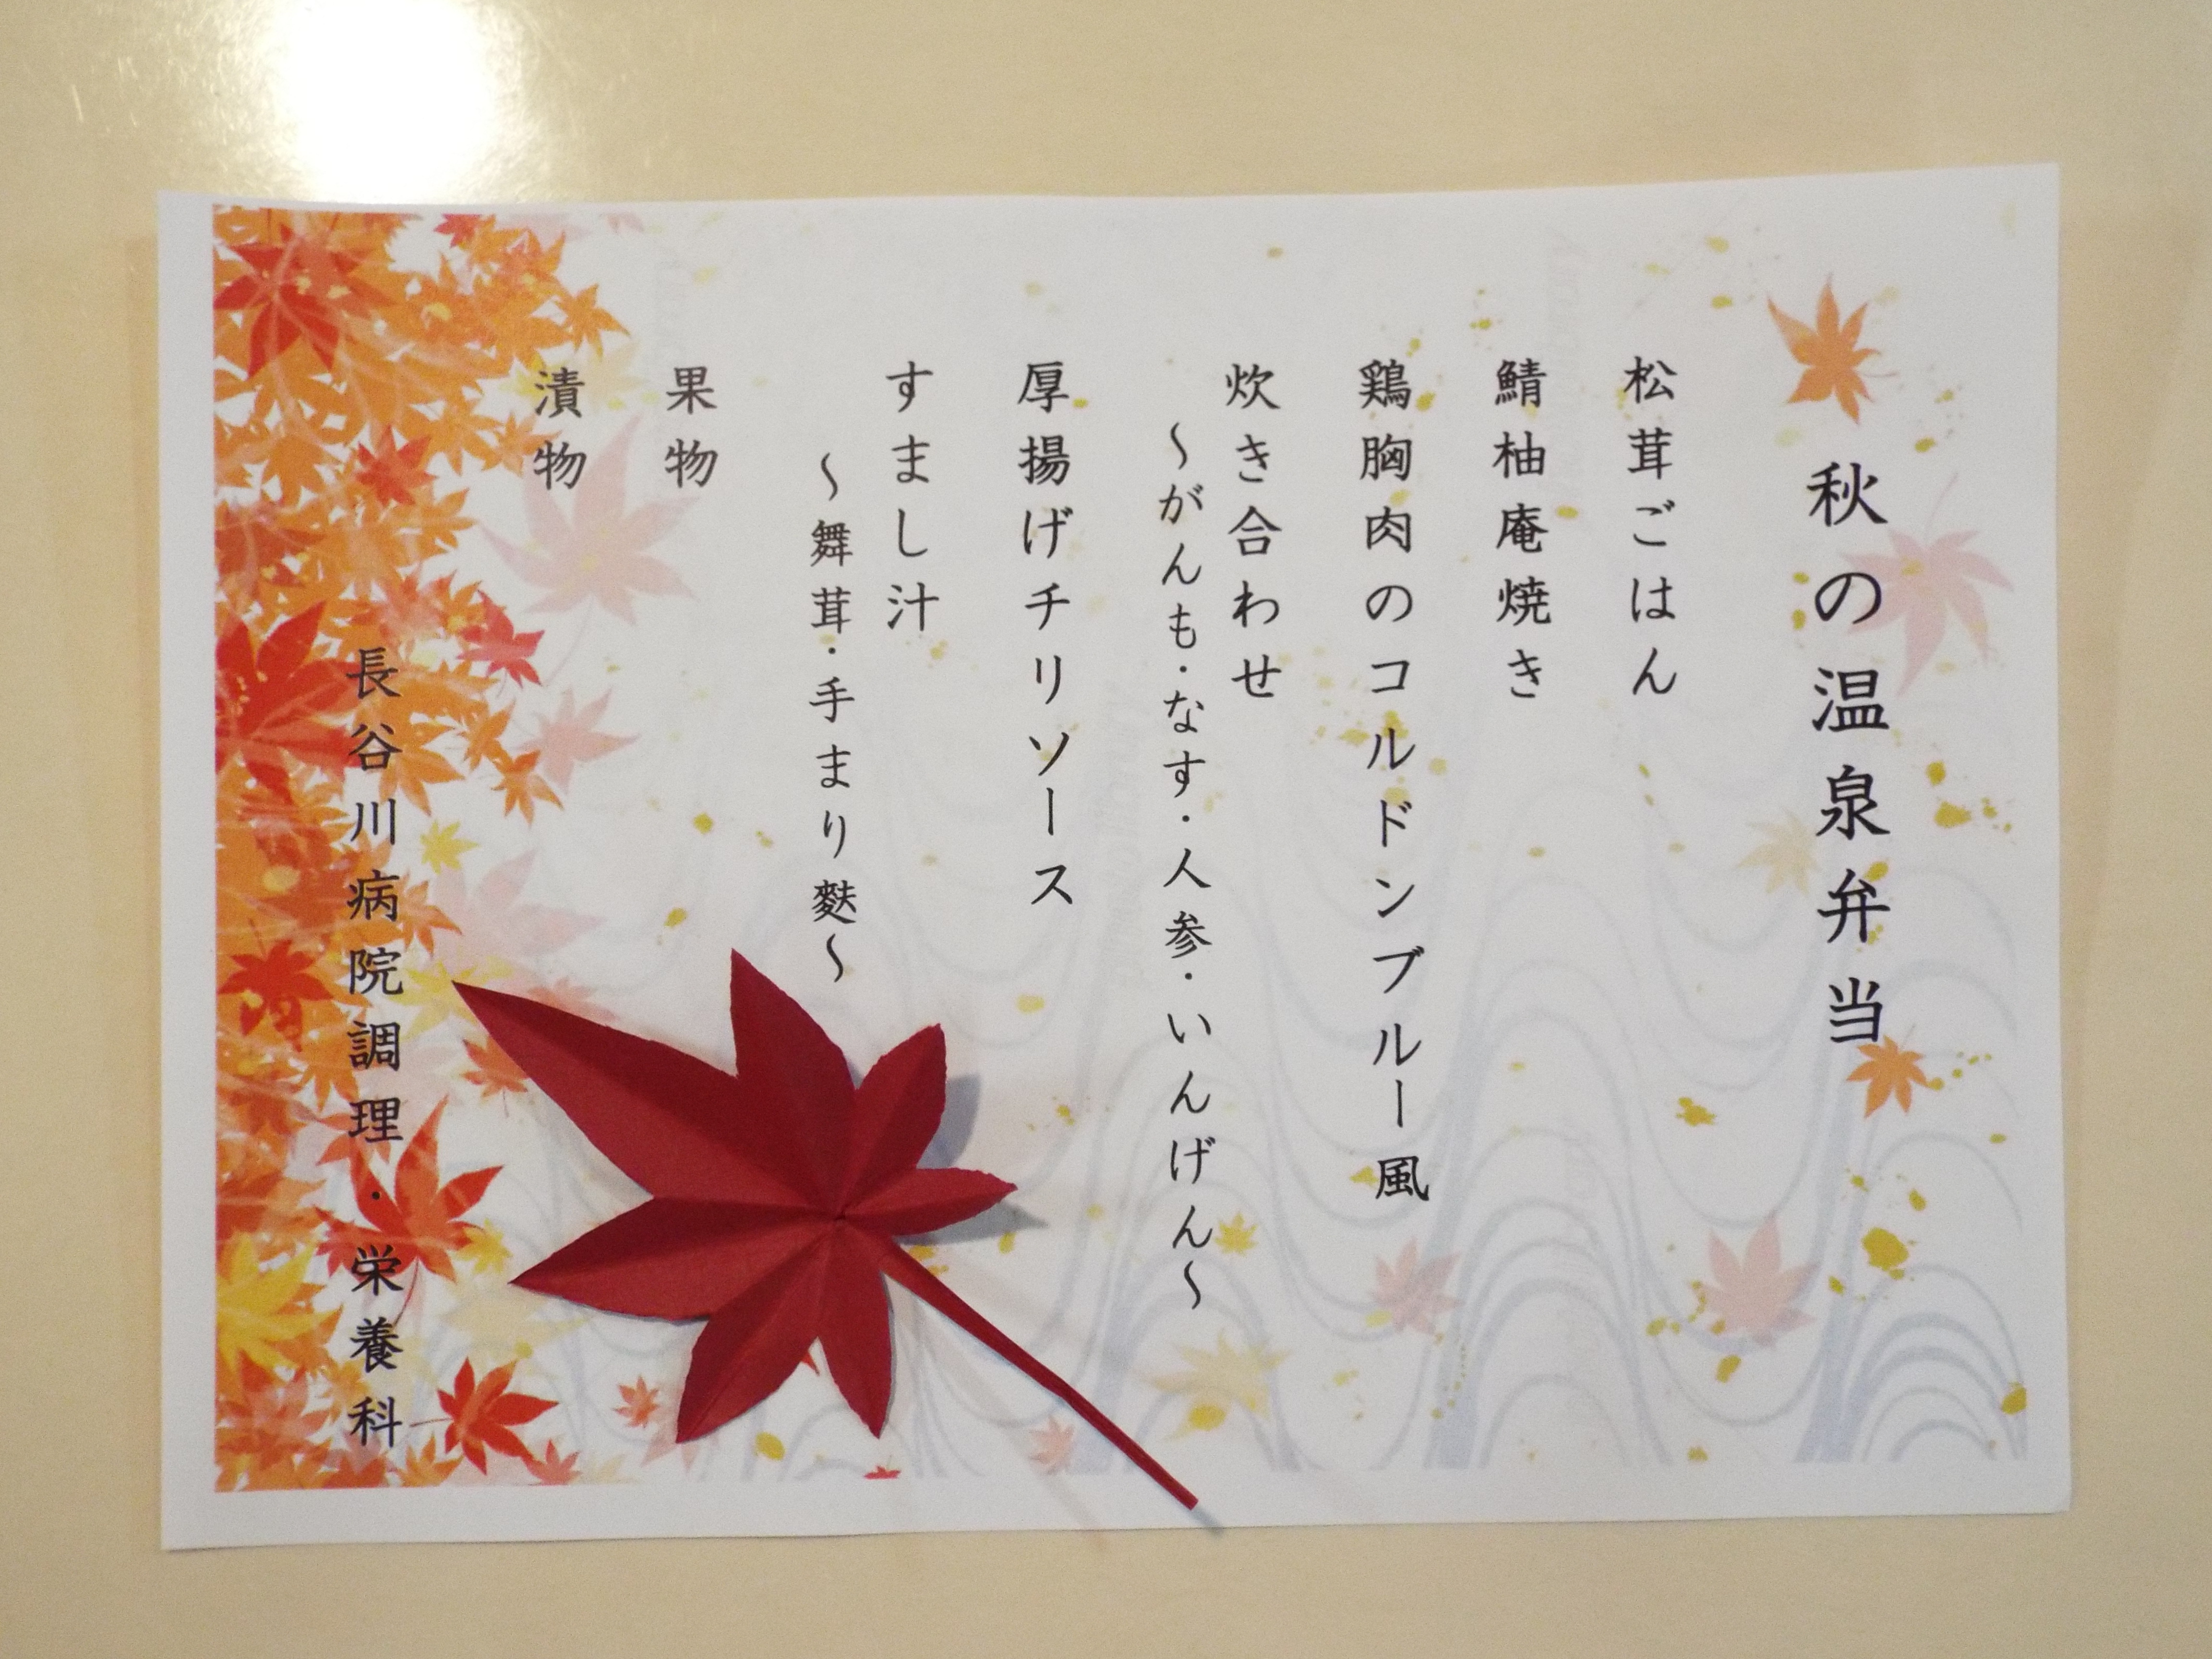 秋の温泉弁当
松茸ごはん
鯖柚庵焼き
鶏胸肉のコルドンブルー風
炊き合わせ
～がんも・なす・人参・いんげん～
厚揚げチリソース
すまし汁
～舞茸・手まり麩～
果物
漬物
長谷川病院調理・栄養科